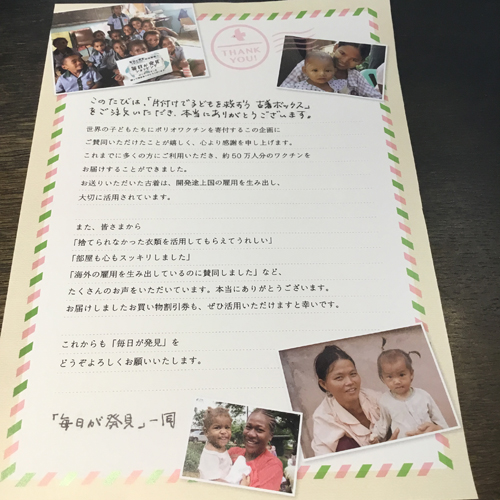 THANK
YOU!
毎日が発見
このたびは、「片付けて子どもを救おう 古着ボックス」
をご注文いただき、本当にありがとうございます。
世界の子どもたちにポリオワクチンを寄付するこの企画に
ご賛同いただけたことが嬉しく、心より感謝を申し上げます。
これまでに多くの方にご利用いただき、約60万人分のワクチンを
お届けすることができました。
お送りいただいた古着は、開発途上国の雇用を生み出し、
大切に活用されています。
また、皆さまから
「捨てられなかった衣類を活用してもらえてうれしい」
「部屋も心もスッキリしました」
「海外の雇用を生み出しているのに賛同しました」など、
たくさんのお声をいただいています。本当にありがとうございます。
お届けしましたお買い物割引券も、ぜひ活用いただけますと幸いです。
これからも「毎日が発見」を
どうぞよろしくお願いいたします。
「毎日が発見」一同